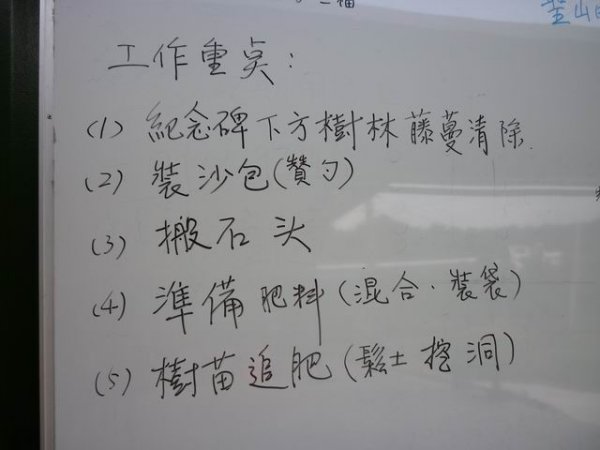 工作重点:
(1) 紀念碑下方樹林藤蔓清除.
(2) 裝沙包(贊勺)
(3) 搬石头
(4) 準備肥料(混合、裝袋)
(5) 樹苗追肥(鬆土挖洞)